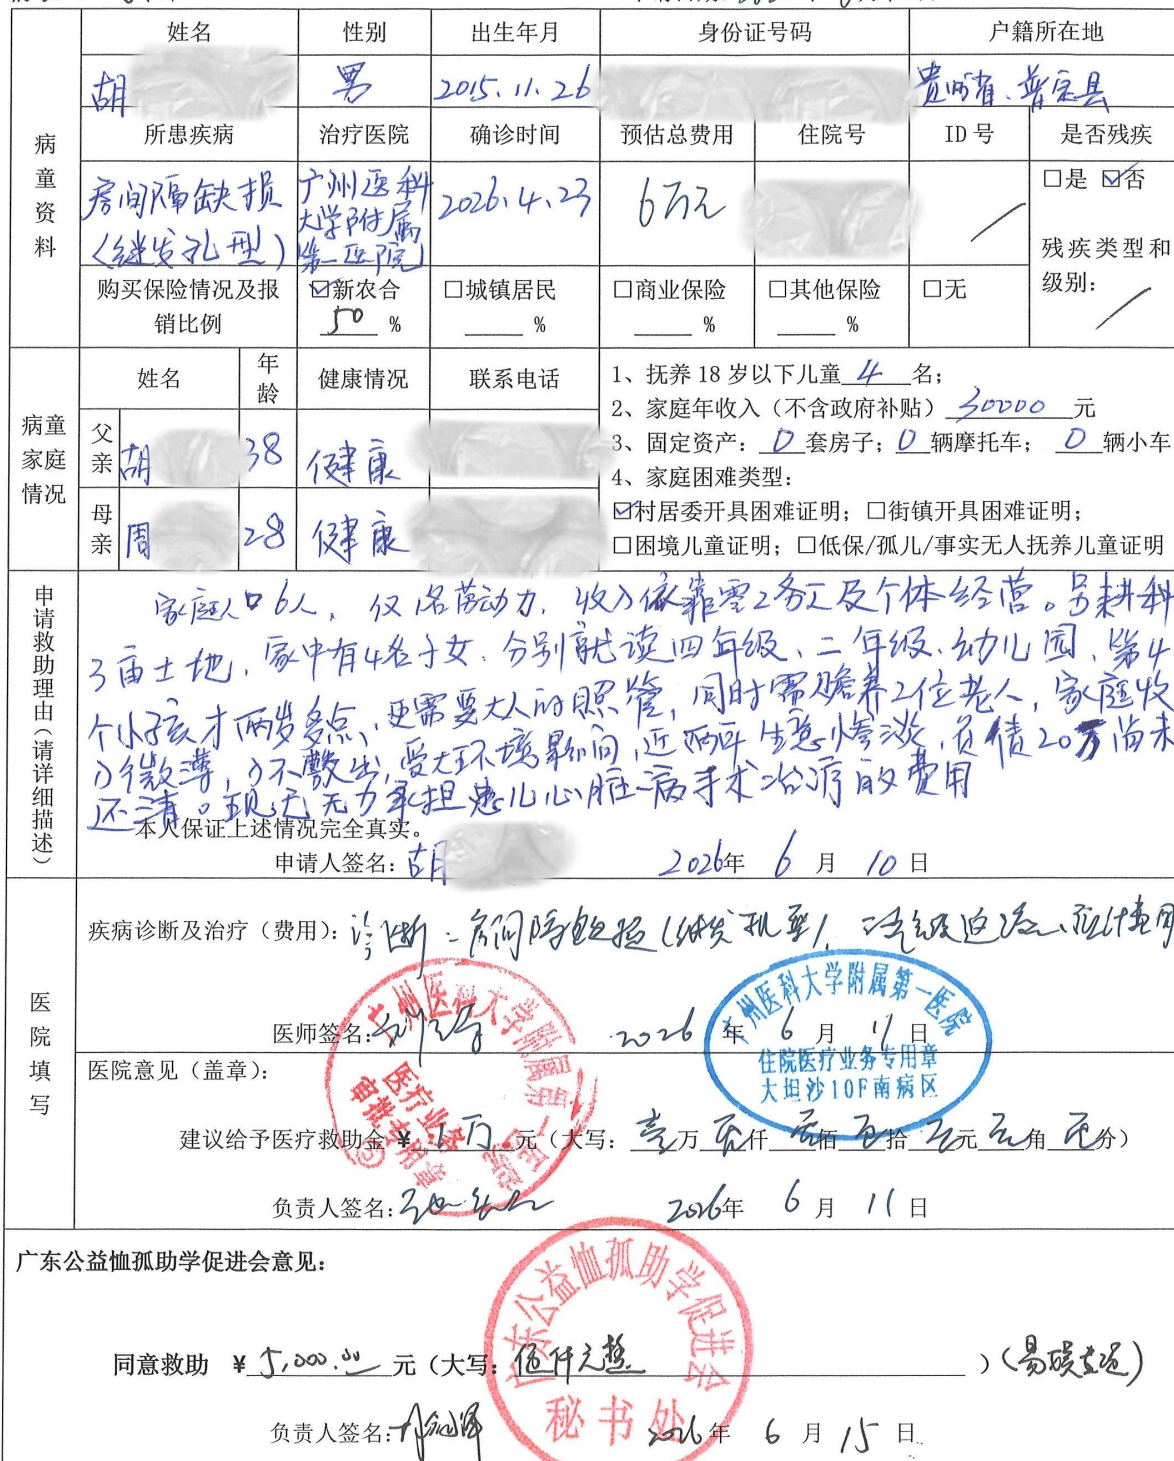 姓名 性别 出生年月 身份证号码 户籍所在地
胡 男 2015.11.26 贵州省、普定县
病童资料
所患疾病 治疗医院 确诊时间 预估总费用 住院号 ID号 是否残疾
房间隔缺损(继发孔型) 广州医科大学附属第一医院 2026.4.23 6万元 / □是 ☑否
残疾类型和级别: /
购买保险情况及报销比例 ☑新农合 50 % □城镇居民 ____ % □商业保险 ____ % □其他保险 ____ % □无
病童家庭情况
姓名 年龄 健康情况 联系电话
父亲 胡 38 健康
母亲 周 28 健康
1、抚养18岁以下儿童 4 名;
2、家庭年收入(不含政府补贴) 30000 元
3、固定资产: 0 套房子; 0 辆摩托车; 0 辆小车
4、家庭困难类型:
☑村居委开具困难证明; □街镇开具困难证明;
□困境儿童证明; □低保/孤儿/事实无人抚养儿童证明
申请救助理由(请详细描述)
家庭人口6人, 仅1名劳动力, 收入依靠零工务工及个体经营。另耕种
3亩土地, 家中有4名子女. 分别就读四年级、二年级、幼儿园, 第4
个小孩才两岁多点, 还需要大人的照管, 同时需赡养2位老人, 家庭收
入微薄, 入不敷出, 受大环境影响, 近两年生意惨淡, 负债20万尚未
还清。现已无力承担患儿心脏病手术治疗的费用
本人保证上述情况完全真实。
申请人签名: 胡 2026年 6 月 10 日
医院填写
疾病诊断及治疗(费用): 诊断: 房间隔缺损(继发孔型),
医师签名: 2026 年 6 月 11 日
广州医科大学附属第一医院
医疗业务
审批专用章
广州医科大学附属第一医院
住院医疗业务专用章
大坦沙10F南病区
医院意见(盖章):
建议给予医疗救助金¥ 1万 元(大写: 壹万 零仟 零佰 零拾 零元 零角 零分)
负责人签名: 2026年 6 月 11 日
广东公益恤孤助学促进会意见:
同意救助 ¥ 5,000.00 元(大写: 伍仟元整 )
广东公益恤孤助学促进会
秘书处
负责人签名: 2026年 6 月 15 日